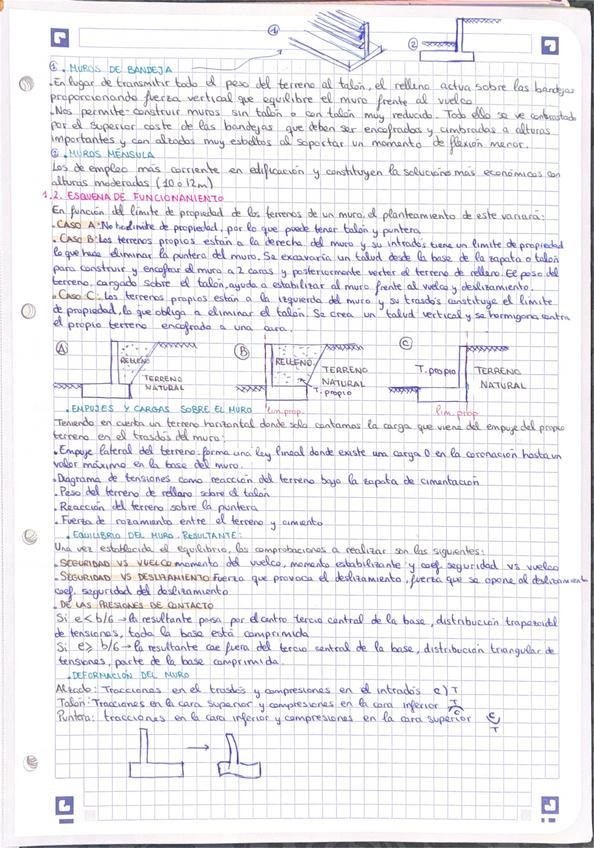 ①
②
①. MUROS DE BANDEJA
. En lugar de transmitir todo el peso del terreno al talón, el relleno actua sobre las bandejas
proporcionando fuerza vertical que equilibre el muro frente al vuelco.
. Nos permite construir muros sin talón o con talón muy reducido. Todo ello se ve contrastado
por el superior coste de las bandejas que deben ser encofradas y cimbradas a alturas
importantes y con alzados muy esbeltos al soportar un momento de flexión menor.
②. MUROS MÉNSULA
Los de empleo más corriente en edificación y constituyen la solucións más económicas con
alturas moderadas (10 o 12m)
1.2. ESQUEMA DE FUNCIONAMIENTO
En función del límite de propiedad de los terrenos de un muro, el planteamiento de este variará:
. CASO A: No hay límite de propiedad, por lo que puede tener talón y puntera
. CASO B: Los terrenos propios están a la derecha del muro y su intradós tiene un límite de propiedad
lo que hace eliminar la puntera del muro. Se excavaría un talud desde la base de la zapata o talón
para construir y encofrar el muro a 2 caras y posteriormente verter el terreno de relleno. El peso del
terreno, cargado sobre el talón, ayuda a estabilizar al muro frente al vuelco y deslizamiento.
. Caso C: Los terrenos propios están a la izquierda del muro y su trasdós constituye el límite
de propiedad, lo que obliga a eliminar el talón. Se crea un talud vertical y se hormigona contra
el propio terreno encofrado a una cara.
Ⓐ RELLENO TERRENO NATURAL
Ⓑ RELLENO TERRENO NATURAL T. propio lim. prop.
Ⓒ T. propio TERRENO NATURAL lim. prop
. EMPUJES Y CARGAS SOBRE EL MURO
Teniendo en cuenta un terreno horizontal donde solo contamos la carga que viene del empuje del propio
terreno en el trasdós del muro:
. Empuje lateral del terreno: forma una ley lineal donde existe una carga 0 en la coronación hasta un
valor máximo en la base del muro.
. Diagrama de tensiones como reacción del terreno bajo la zapata de cimentación
. Peso del terreno de relleno sobre el talón
. Reacción del terreno sobre la puntera
. Fuerza de rozamiento entre el terreno y cimiento
. EQUILIBRIO DEL MURO. RESULTANTE:
Una vez establecida el equilibrio, las comprobaciones a realizar son las siguientes:
. SEGURIDAD VS VUELCO momento del vuelco, momento estabilizante y coef. seguridad vs vuelco
. SEGURIDAD VS DESLIZAMIENTO Fuerza que provoca el deslizamiento, fuerza que se opone al deslizamiento
coef. seguridad del deslizamiento
. DE LAS PRESIONES DE CONTACTO
Si e < b/6 → la resultante pasa por el centro tercio central de la base, distribución trapezoidal
de tensiones, toda la base está comprimida
Si e ≥ b/6 → la resultante cae fuera del tercio central de la base, distribución triangular de
tensiones, parte de la base comprimida.
. DEFORMACIÓN DEL MURO
Alzado: Tracciones en el trasdós y compresiones en el intradós c) T
Talón: Tracciones en la cara superior y compresiones en la cara inferior T C
Puntera: tracciones en la cara inferior y compresiones en la cara superior C T